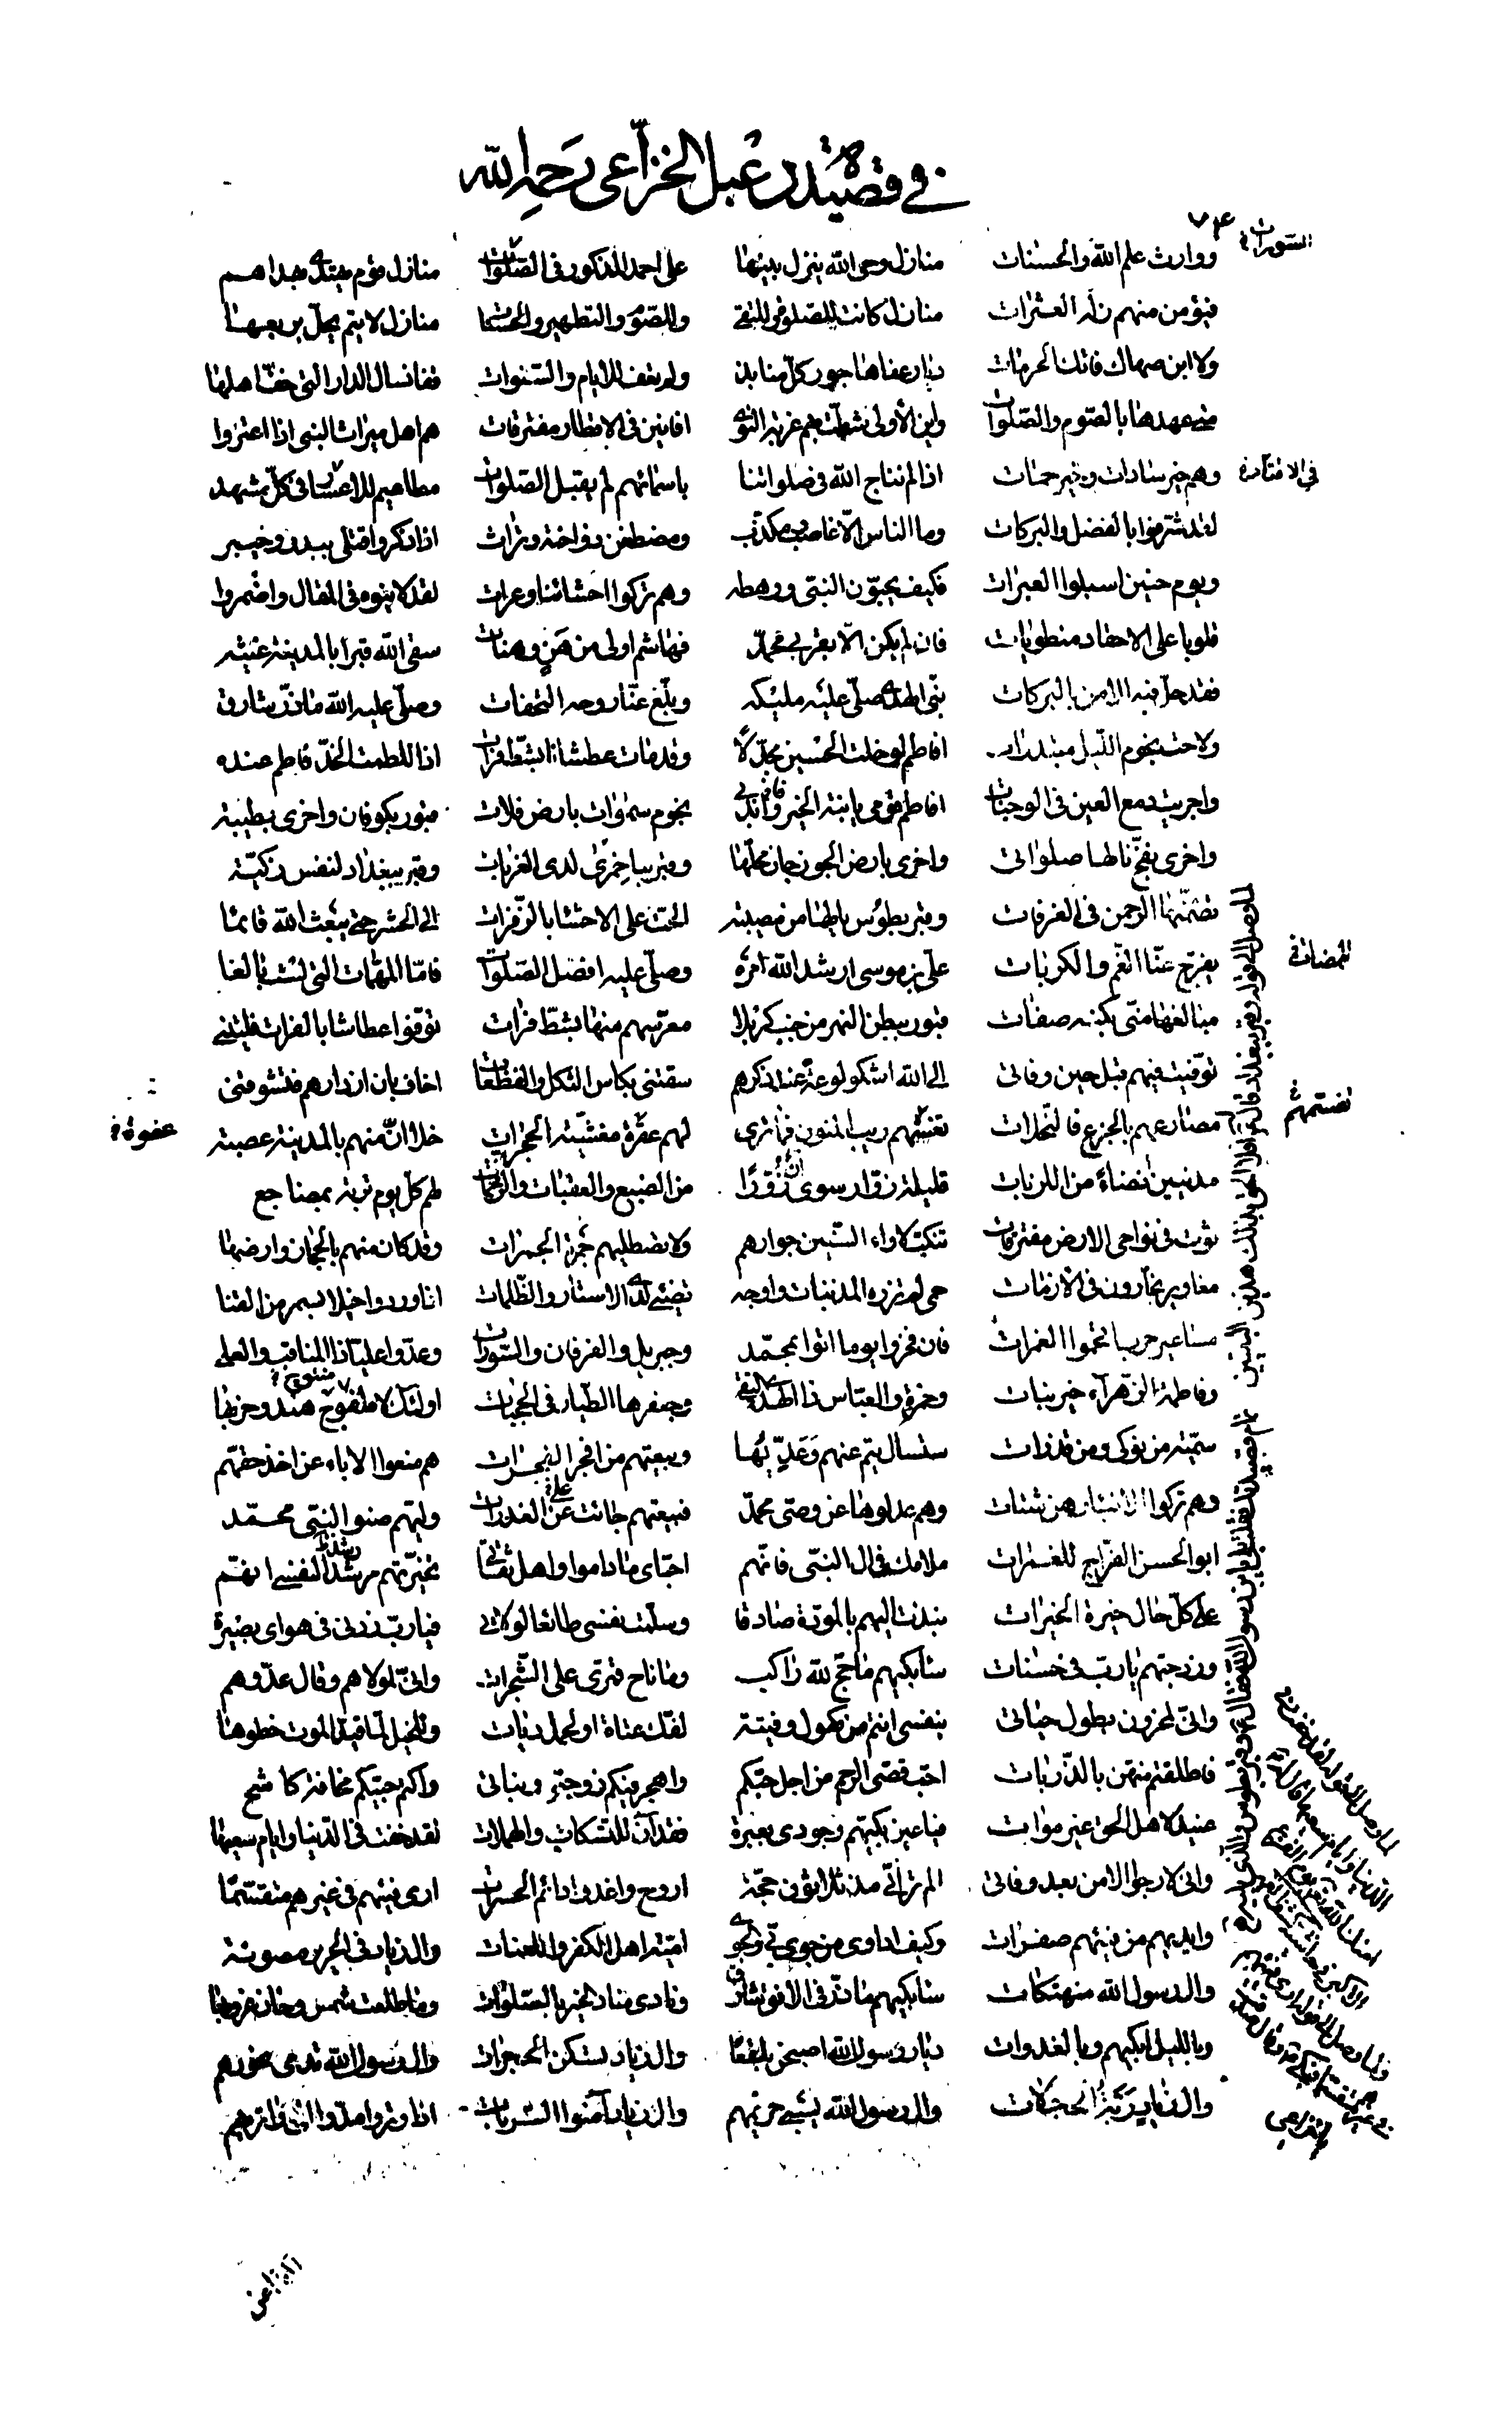 في قصيدة دعبل الخزاعي رحمه الله
٧٤
السورات
ووارث علم الله والحسنات منازل وحي الله ينزل بينها على احمد المذكور في الصلوات منازل قوم يهتدى بهداهم
فيؤمن منهم زلة العثرات منازل كانت للصلوة وللتقى وللصوم والتطهير والحسنات منازل لا يتم يحل بربعها
ولا ابن صهاك فاتك الحرمات ديار عفاها جور كل منابذ ولم تعف للايام والسنوات قفا نسال الدار التي خف اهلها
متى عهدها بالصوم والصلوات واين الأولى شطت بهم غربة النوى افانين في الاقطار مفترقات هم اهل ميراث النبي اذا اعتزوا
وهم خير سادات وخير حمات اذا لم نناج الله في صلواتنا باسمائهم لم يقبل الصلوات مطاعيم للاعسار في كل مشهد
لقد شرفوا بالفضل والبركات وما الناس الا غاصب ومكذب ومضطغن ذو احنة وترات اذا ذكروا قتلى ببدر وخيبر
ويوم حنين اسبلوا العبرات فكيف يحبون النبي ورهطه وهم تركوا احشائنا وغرات لقد لاينوه في المقال واضمروا
قلوبا على الاحقاد منطويات فان لم يكن الا بقربى محمد فهاشم اولى من هن وهنات سقى الله قبرا بالمدينة غيثه
فقد حل فيه الامن بالبركات نبي الهدى صلى عليه مليكه وبلغ عنا روحه التحفات وصلى عليه الله ما ذر شارق
ولاحت نجوم الليل مبتدرات افاطم لو خلت الحسين مجدلا وقد مات عطشانا بشط فرات اذا للطمت الخد فاطم عنده
واجريت دمع العين في الوجنات افاطم قومي يا ابنة الخير واندبي نجوم سموات بارض فلات قبور بكوفان واخرى بطيبة
واخرى بفخ نالها صلواتي واخرى بارض الجوزجان محلها وقبر بباخمرى لدى الغربات وقبر ببغداد لنفس زكية
تضمنها الرحمن في الغرفات وقبر بطوس يا لها من مصيبة الحت على الاحشا بالزفرات الى الحشر حتى يبعث الله قائما
يفرج عنا الغم والكربات علي بن موسى ارشد الله امره وصلى عليه افضل الصلوات فاما الممضات التي لست بالغا
مبالغها مني بكنه صفات قبور ببطن النهر من جنب كربلا معرسهم منها بشط فرات توفوا عطاشا بالفرات فليتني
توفيت فيهم قبل حين وفاتي الى الله اشكو لوعة عند ذكرهم سقتني بكاس الثكل والفظعات اخاف بان ازدارهم فتشوقني
مصارعهم بالجزع فالنخلات تغشيهم ريب المنون فما ترى لهم عقرة مغشية الحجرات خلا ان منهم بالمدينة عصبة
مدنيين انضاء من اللزبات قليلة زوار سوى ان زورا من الضبع والعقبان والرخمات لهم كل يوم تربة بمضاجع
ثوت في نواحي الارض مفترقات تنكب لاواء السنين جوارهم ولا تصطليهم جمرة الجمرات وقد كان منهم بالحجاز وارضها
مغاوير نحارون في الازمات حمى لم تزره المذنبات واوجه تضيء لدى الاستار والظلمات اذا وردوا خيلا بسمر من القنا
مساعير حرب اقحموا الغمرات فان فخروا يوما اتوا بمحمد وجبريل والفرقان والسورات وعدوا عليا ذا المناقب والعلى
وفاطمة الزهراء خير بنات وحمزة والعباس ذا الهدى والتقى وجعفرها الطيار في الحجبات اولئك لا ملقوح هند وحزبها
سمية من نوكى ومن قذرات ستسأل تيم عنهم وعديها وبيعتهم من افجر الفجرات هم منعوا الاباء عن اخذ حقهم
وهم تركوا الابناء رهن شتات وهم عدلوها عن وصي محمد فبيعتهم جائت عن الغدرات وليهم صنو النبي محمد
ابو الحسن الفراج للغمرات ملامك في ال النبي فانهم احباي ما داموا واهل ثقاتي تخيرتهم رشدا لنفسي انهم
على كل حال خيرة الخيرات نبذت اليهم بالمودة صادقا وسلمت نفسي طائعا لولاتي فيا رب زدني في هواي بصيرة
وزد حبهم يا رب في حسنات سابكيهم ما حج لله راكب وما ناح قمري على الشجرات واني لمولاهم وقال عدوهم
واني لمحزون بطول حياتي بنفسي انتم من كهول وفتية لفك عتاة او لحمل ديات وللخيل لما قيد الموت خطوها
فاطلقتم منهن بالذربات احب قصي الرحم من اجل حبكم واهجر فيكم زوجتي وبناتي واكتم حبيكم مخافة كاشح
عنيد لاهل الحق غير موات فيا عين بكيهم وجودي بعبرة فقد آن للتسكاب والهملات لقد خفت في الدنيا وايام سعيها
واني لارجو الامن بعد وفاتي الم تر اني مذ ثلاثون حجة اروح واغدو دائم الحسرات ارى فيئهم في غيرهم متقسما
وايديهم من فيئهم صفرات وكيف اداوى من جوى بي والجوى امية اهل الكفر واللعنات وال زياد في الحرير مصونة
وال رسول الله منهتكات سابكيهم ما ذر في الافق شارق ونادى مناد الخير بالصلوات وما طلعت شمس وحان غروبها
وبالليل ابكيهم وبالغدوات ديار رسول الله اصبحن بلقعا وال زياد تسكن الحجرات وال رسول الله تدمى نحورهم
وال زياد ربة الحجلات وال رسول الله يسبى حريمهم وال زياد آمنوا السربات اذا وتروا مدوا الى واتريهم
للممضات
عفوة
لما وصل الى قوله وقبر ببغداد قال افلا الحق بذلك هذين البيتين تمام قصيدتك فقال بلى يا ابن رسول الله فقال وقبر بطوس والذي يليه